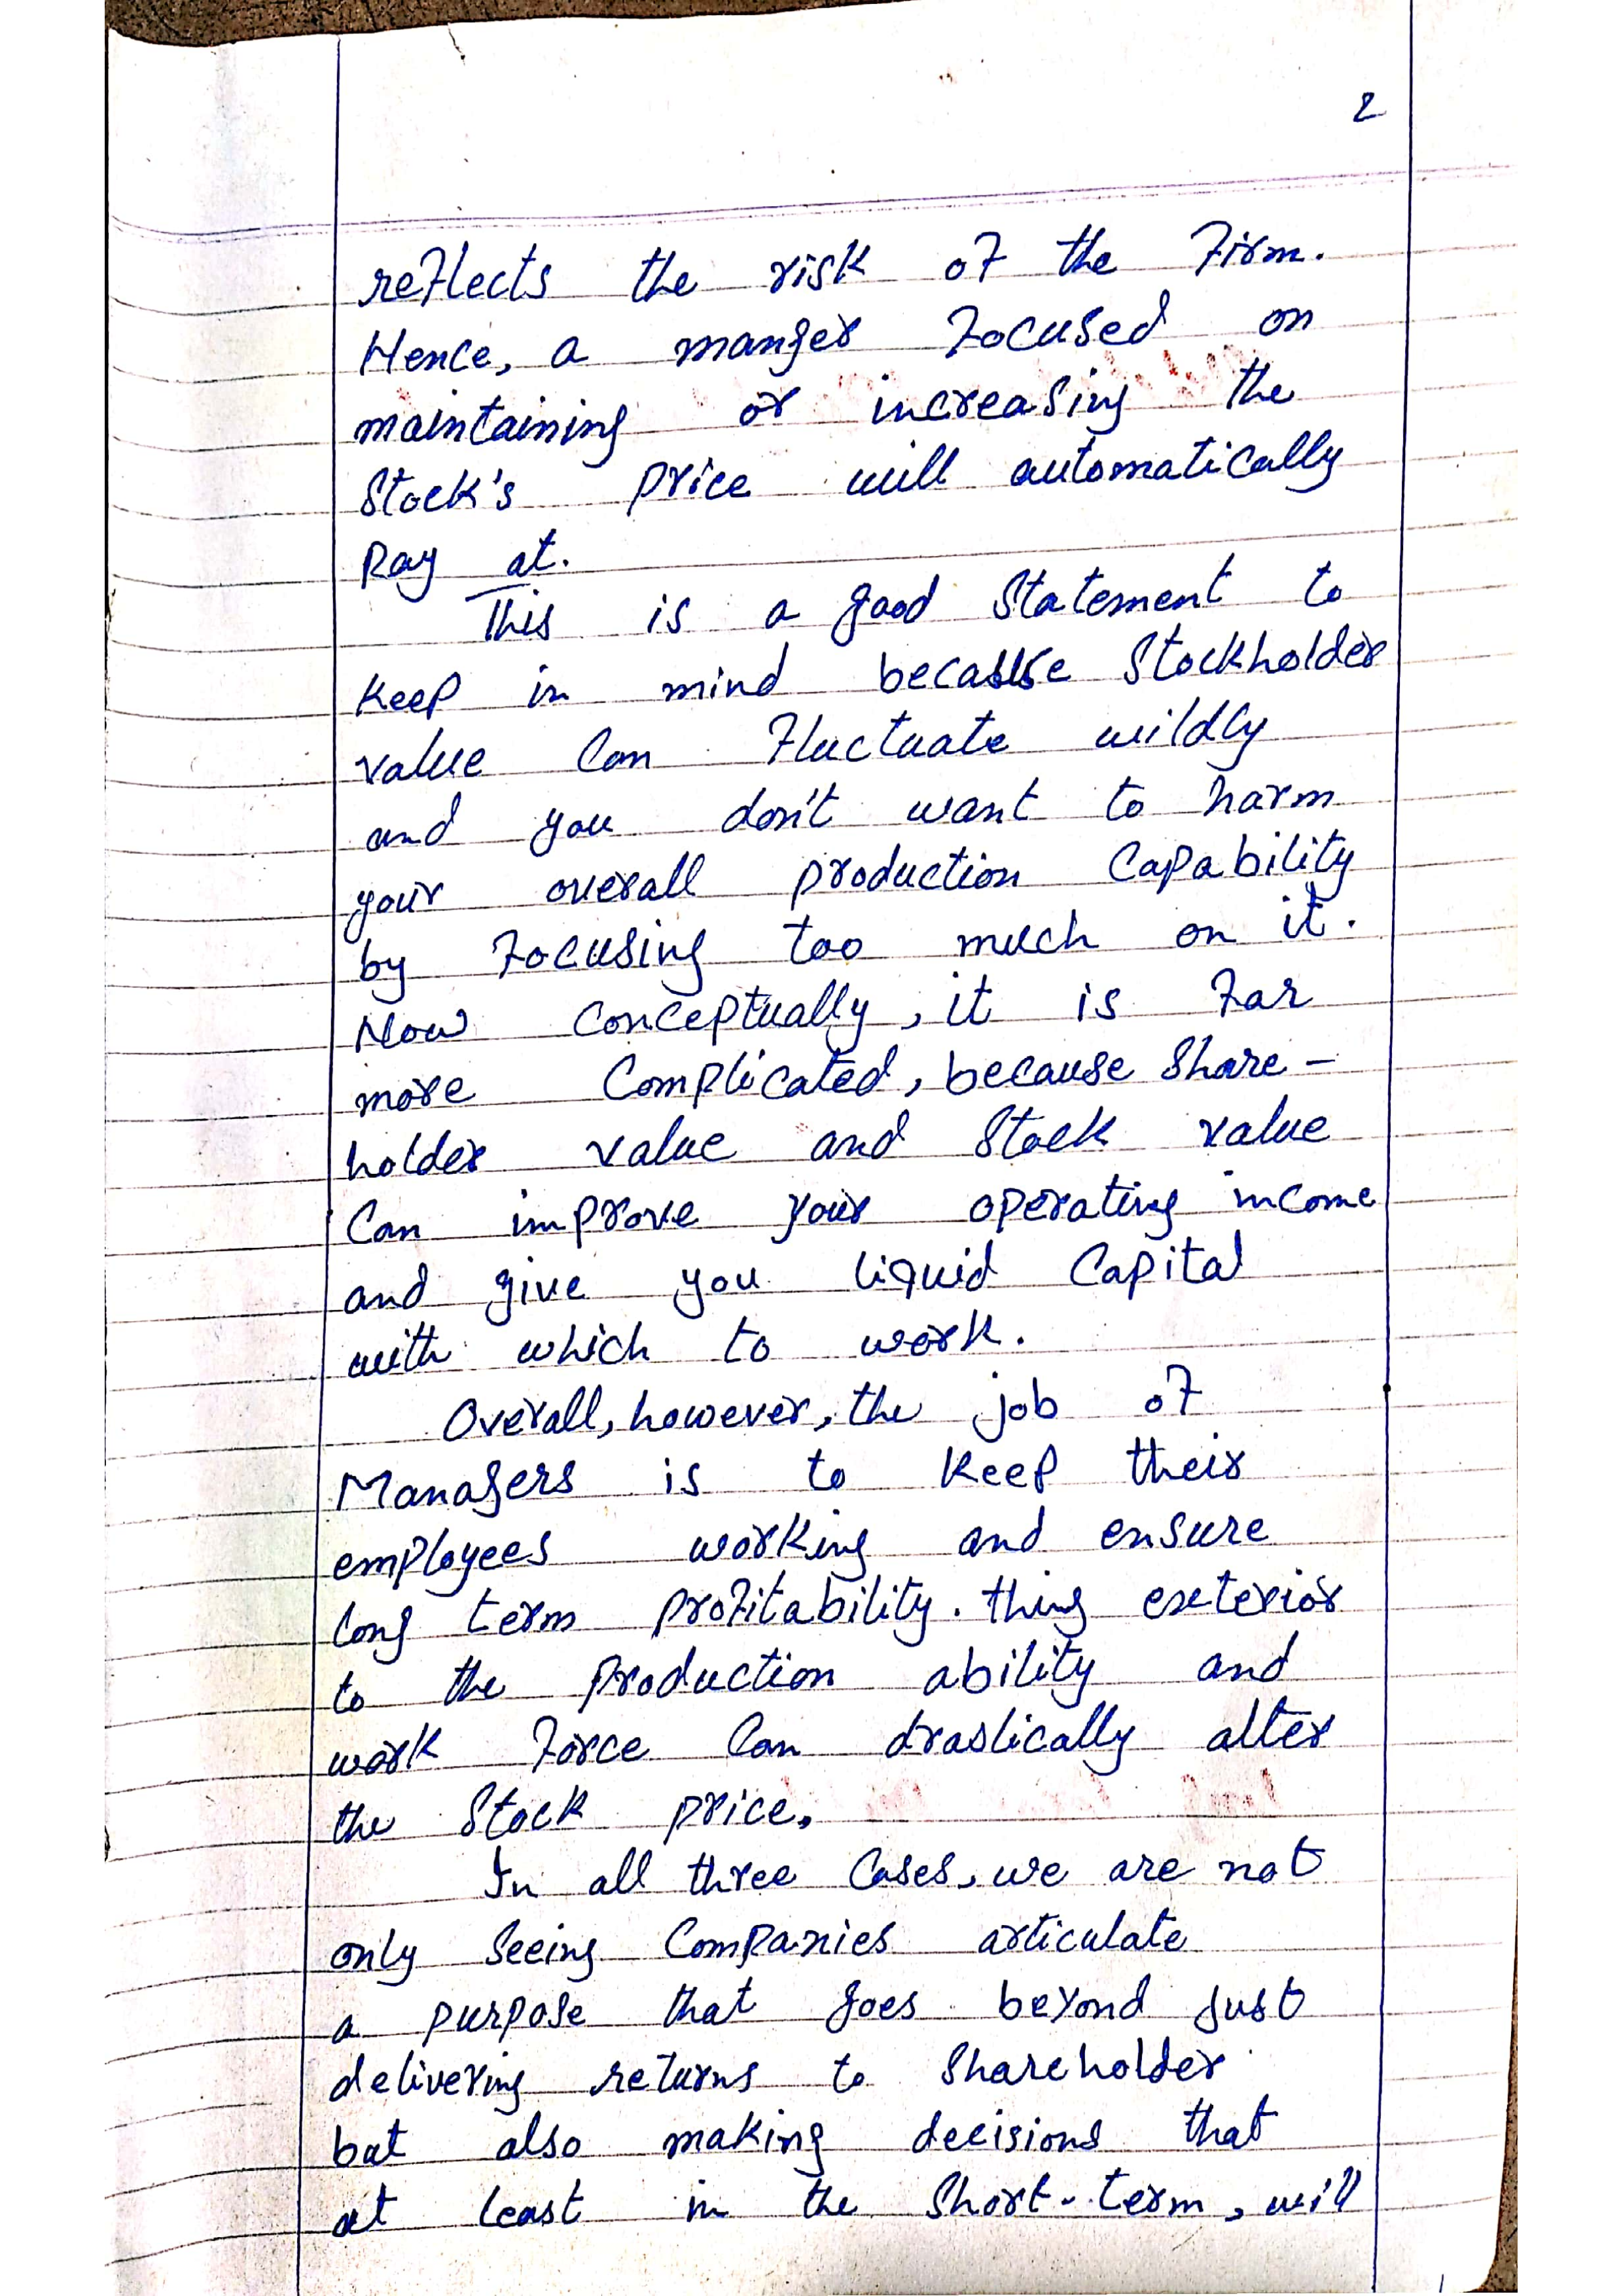 2
reflects the risk of the firm.
Hence, a manger focused on
maintaining or increasing the
Stock's price will automatically
Pay at.
This is a good statement to
keep in mind because Stockholder
value can fluctuate wildly
and you don't want to harm
your overall production capability
by focusing too much on it.
Now conceptually, it is far
more complicated, because share-
holder value and stock value
can improve your operating income
and give you liquid capital
with which to work.
Overall, however, the job of
Managers is to keep their
employees working and ensure
long term profitability. thing exterior
to the production ability and
work force can drastically alter
the stock price.
In all three cases, we are not
only seeing companies articulate
a purpose that goes beyond just
delivering returns to shareholder
but also making decisions that
at least in the short-term, will